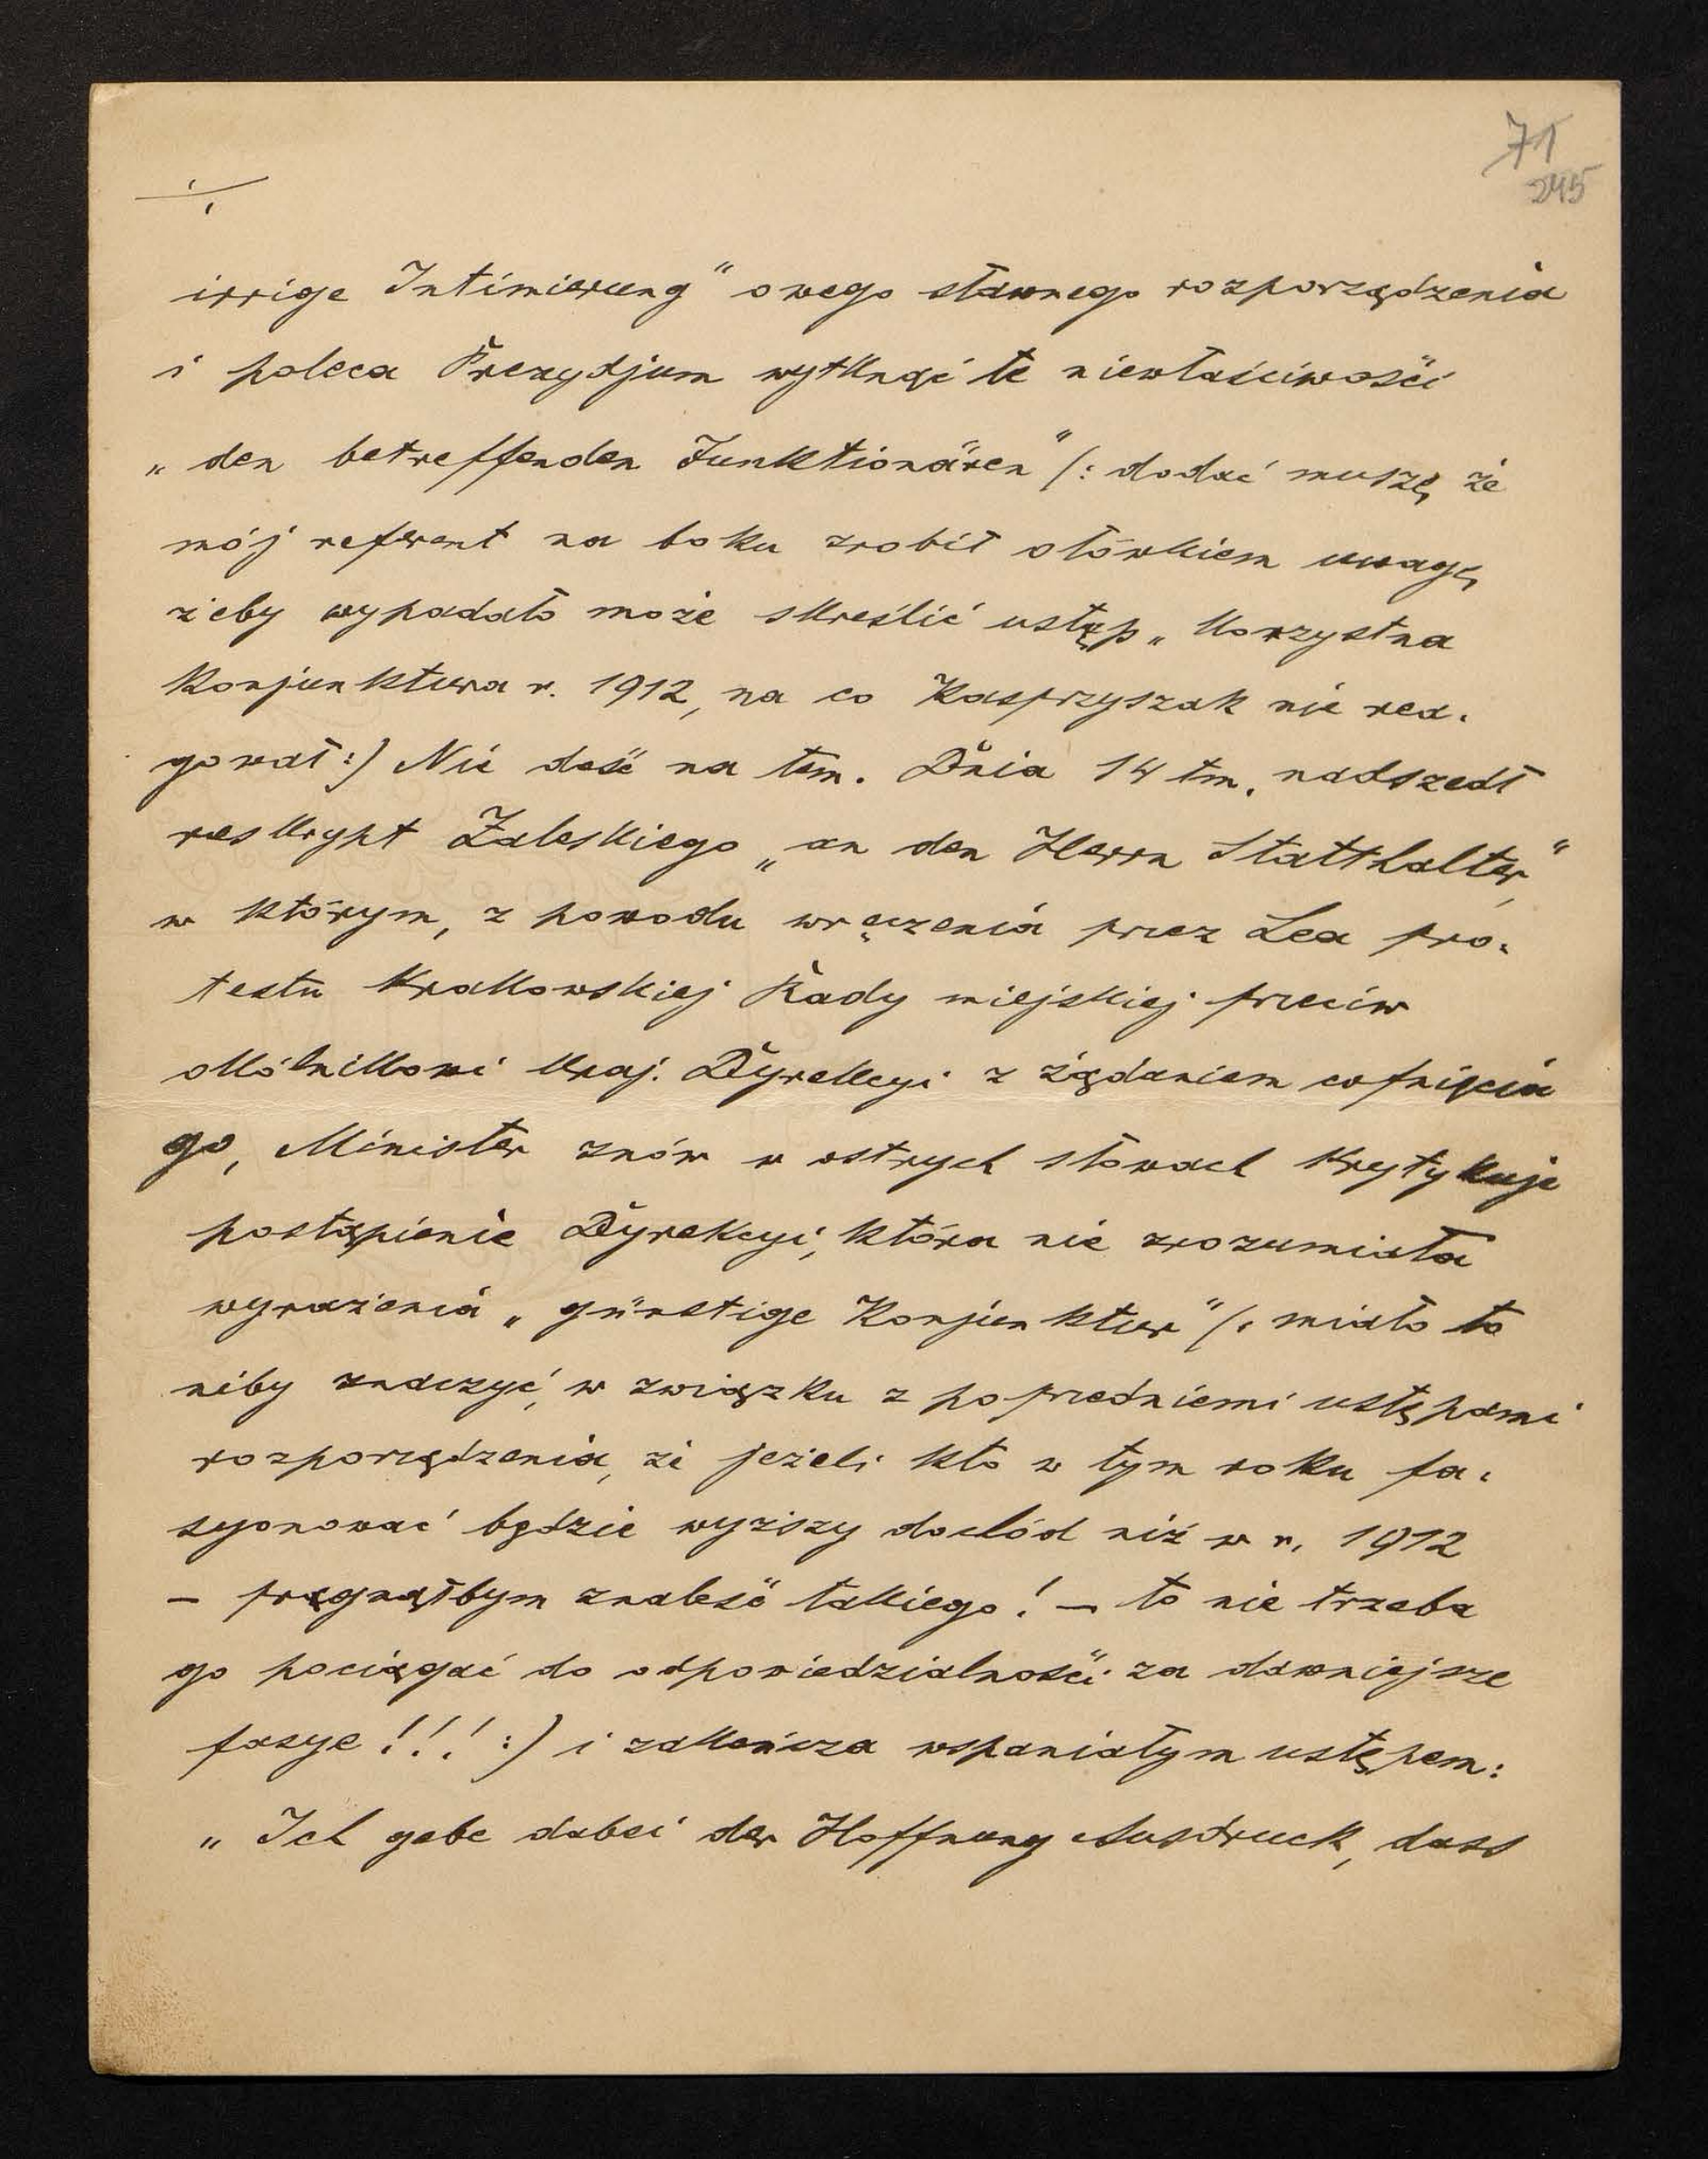 71
245
irrige Intimierung" owego sławnego rozporządzenia
i poleca Prezydjum wytknąć te niewłaściwości
„den betreffenden Funktionären" /: dodać muszę, że
mój referent na boku zrobił ołówkiem uwagę,
żeby wypadało może skreślić ustęp „Korzystna
Konjunktura r. 1912, na co Kasprzyszak nie rea-
gował :/ Nie dość na tem. Dnia 14 tm. nadszedł
reskrypt Zaleskiego „an den Herrn Statthalter",
w którym, z powodu wręczenia przez Lea pro-
testu Krakowskiej Rady miejskiej przeciw
okólnikowi kraj. Dyrekcyi z żądaniem cofnięcia
go, Minister znów w ostrych słowach krytykuje
postąpienie Dyrekcyi, która nie zrozumiała
wyrażenia „günstige Konjunktur" /: miało to
niby znaczyć, w związku z poprzedniemi ustępami
rozporządzenia, że jeżeli kto w tym roku fa-
syonować będzie wyższy dochód niż w r. 1912
– pragnąłbym znaleść takiego! – to nie trzeba
go pociągać do odpowiedzialności za dawniejsze
fasye!!! :/ i zakończa wspaniałym ustępem:
„Ich gebe dabei der Hoffnung Ausdruck, dass